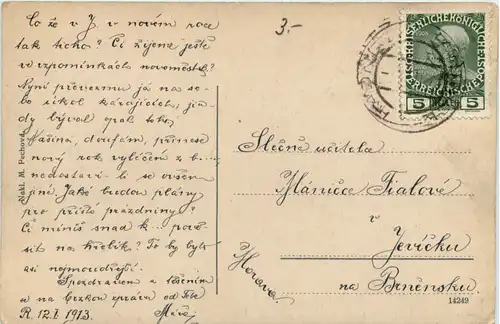 Co že v J. v novém roce
tak ticho? Či žijeme ještě
ve vzpomínkách novoměst.?
Nyní převezmu já na se-
be úkol kárajících,
dy býval spal tak,
Mařina, doufám, přinese
nový rok vyléčení z b...,
nedostaví-li se oršen
jiné. Jaké budou plány
pro příští prázdniny?
Či míníš snad k... pově-
sit na hřebík? To by byt
asi nejmoudřejší.
Spozdravem a těšením
a na brzkou zprávu od Tebe
R. 12./I. 1913.
3.-
Nakl. M. Pechová
KAISERLICHE KÖNIGLICHE
ÖSTERREICHISCHE POST
5 HELLER 5
Slečně učitelce
Mánince Fialové
v
Jevíčku
na Brněnsku
Morava
14249